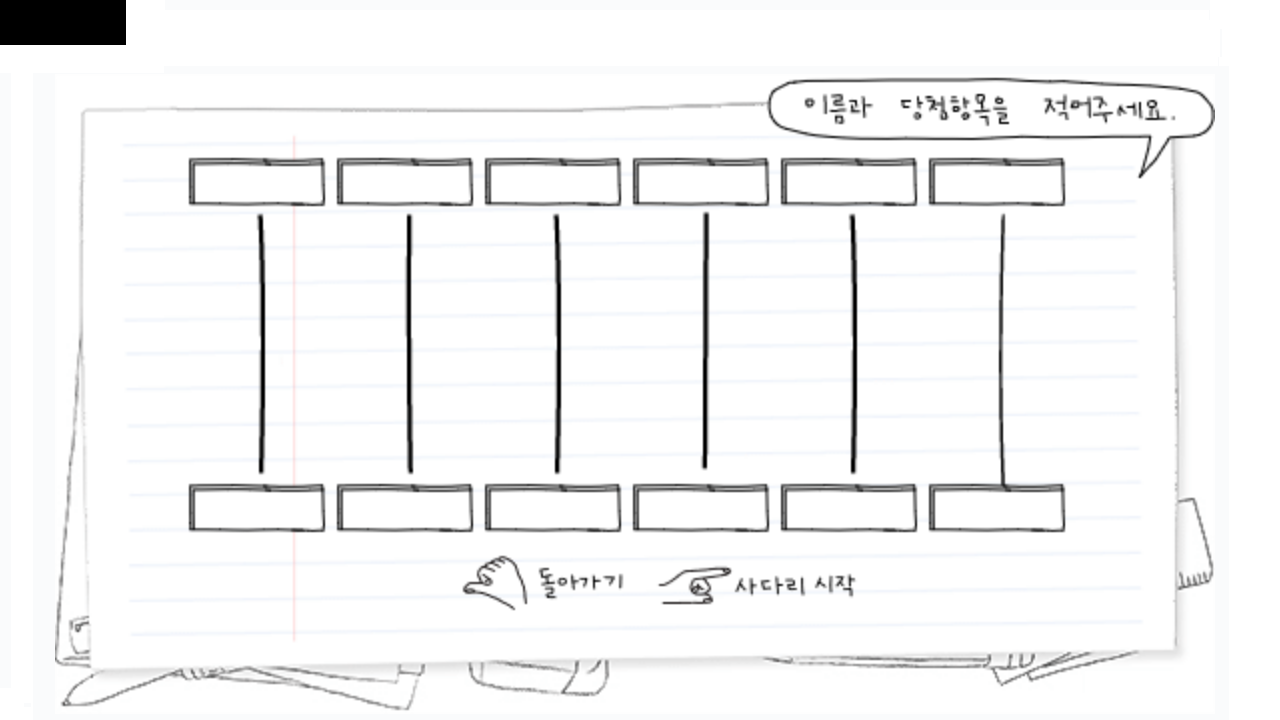 이름과 당첨항목을 적어주세요.
돌아가기
사다리 시작